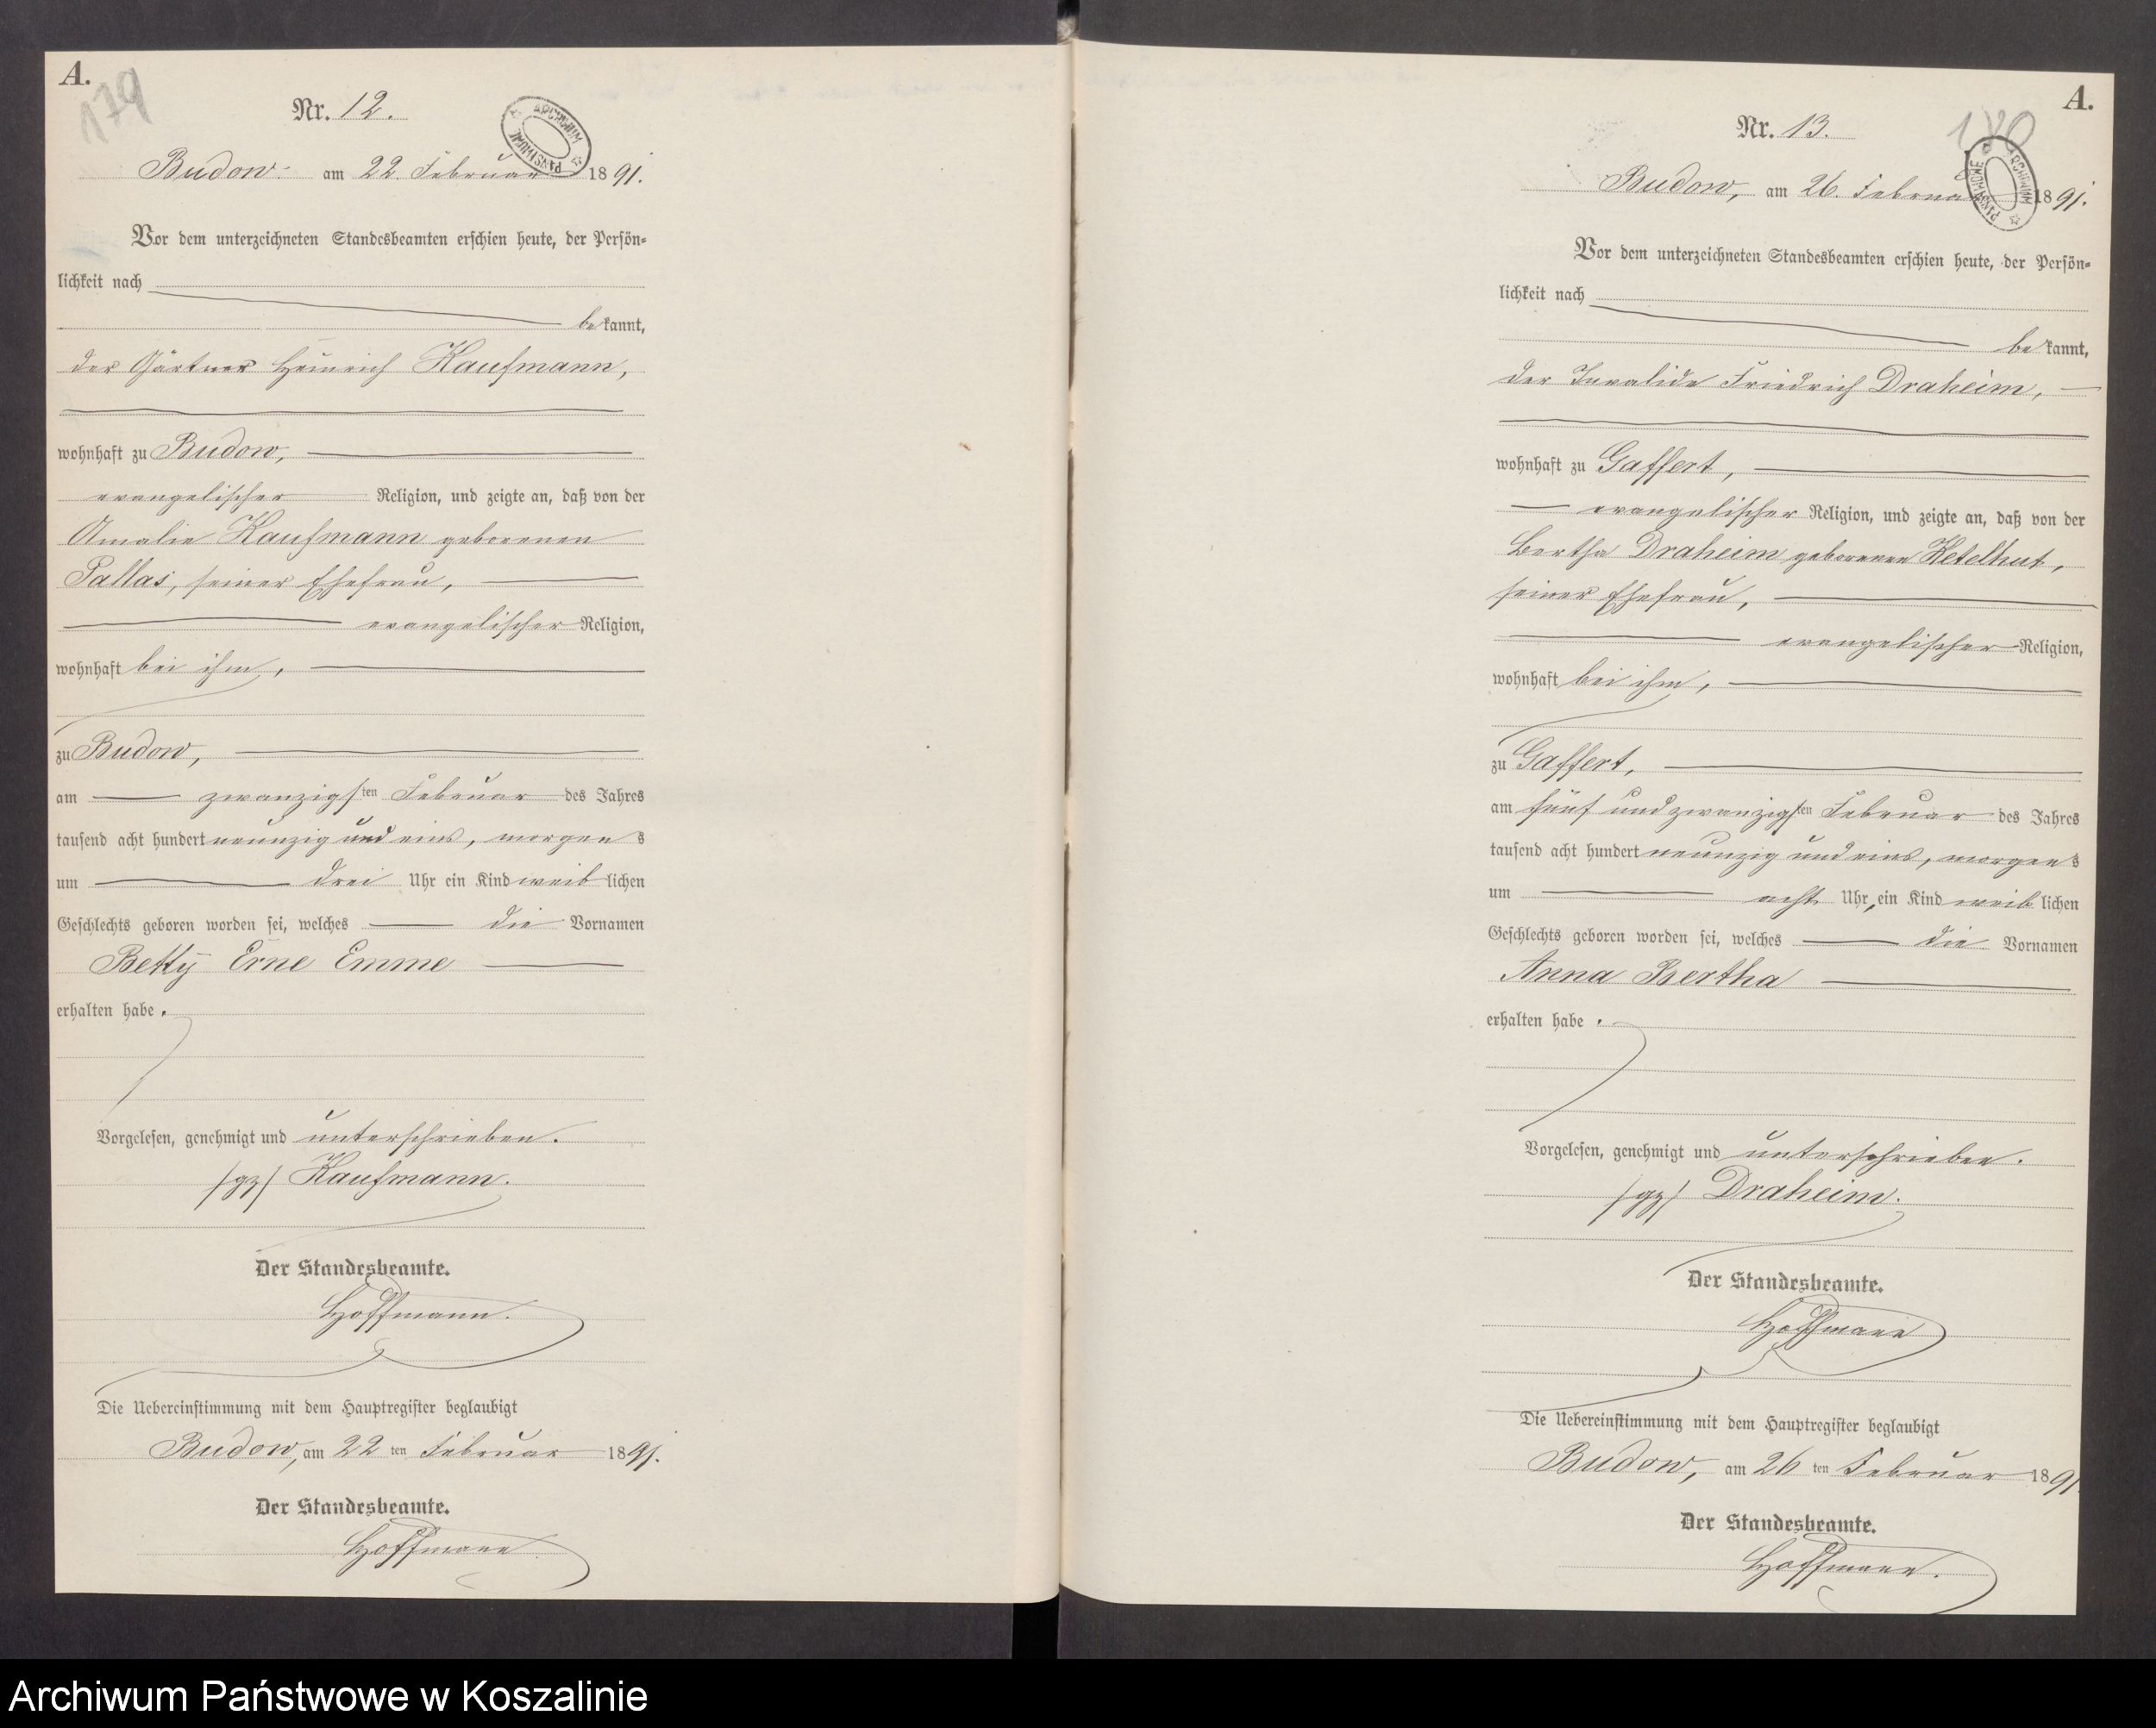 A.
179
Nr. 12.
ARCHIWUM PAŃSTWOWE
Budow. am 22. Februar 1891.
Vor dem unterzeichneten Standesbeamten erschien heute, der Persön=
lichkeit nach
bekannt,
der Gärtner Heinrich Kaufmann,
wohnhaft zu Budow,
evangelischer Religion, und zeigte an, daß von der
Amalie Kaufmann geborenen
Pallas, seiner Ehefrau,
evangelischer Religion,
wohnhaft bei ihm,
zu Budow,
am zwanzigsten Februar des Jahres
tausend acht hundert neunzig und eins, morgens
um drei Uhr ein Kind weiblichen
Geschlechts geboren worden sei, welches die Vornamen
Betty Erne Emme
erhalten habe.
Vorgelesen, genehmigt und unterschrieben.
/gz/ Kaufmann.
Der Standesbeamte.
Hoffmann.
Die Uebereinstimmung mit dem Hauptregister beglaubigt
Budow, am 22 ten Februar 1891.
Der Standesbeamte.
Hoffmann
A.
180
Nr. 13.
ARCHIWUM PAŃSTWOWE
Budow, am 26. Februar 1891.
Vor dem unterzeichneten Standesbeamten erschien heute, der Persön=
lichkeit nach
bekannt,
der Invalide Friedrich Draheim,
wohnhaft zu Gaffert,
evangelischer Religion, und zeigte an, daß von der
Bertha Draheim geborenen Ketelhut,
seiner Ehefrau,
evangelischer Religion,
wohnhaft bei ihm,
zu Gaffert,
am fünf und zwanzigsten Februar des Jahres
tausend acht hundert neunzig und eins, morgens
um acht Uhr, ein Kind weiblichen
Geschlechts geboren worden sei, welches die Vornamen
Anna Bertha
erhalten habe.
Vorgelesen, genehmigt und unterschrieben.
/gz/ Draheim.
Der Standesbeamte.
Hoffmann
Die Uebereinstimmung mit dem Hauptregister beglaubigt
Budow, am 26 ten Februar 1891
Der Standesbeamte.
Hoffmann.
Archiwum Państwowe w Koszalinie